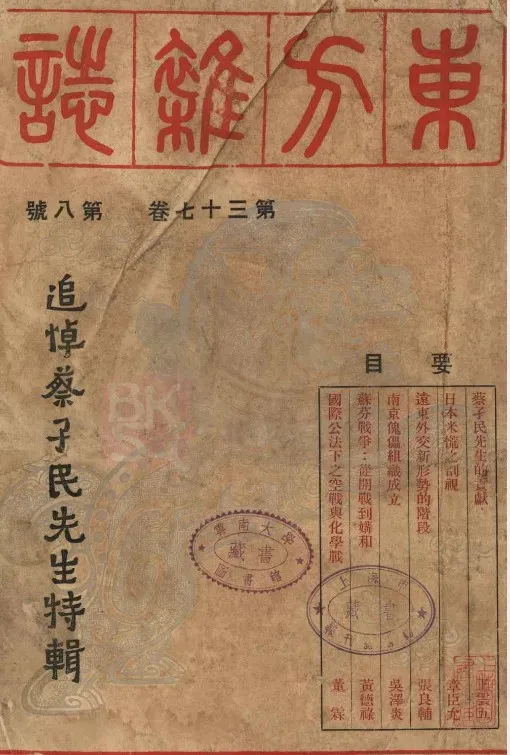 東方雜誌
第三十七卷 第八號
追悼蔡孑民先生特輯
要目
蔡孑民先生的貢獻 王雲五
日本米慌之剖視 章臣允
遠東外交新形勢的階段 張良輔
南京傀儡組織成立 吳澤炎
蘇芬戰爭:從開戰到媾和 黃德祿
國際公法下之空戰與化學戰 董霖
雲南大學
藏書
圖書館
上海
藏書
BK